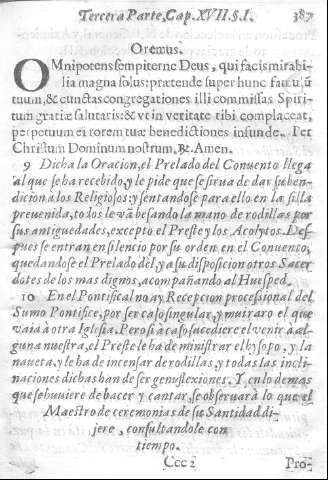 Tercera Parte, Cap. XVII. §. I. 387
Oremus.
OMnipotens sempiterne Deus, qui facis mirabi-
lia magna solus: prætende super hunc famulũ
tuum, & cunctas congregationes illi commissas Spiri-
tum gratiæ salutaris: & vt in veritate tibi complaceat,
perpetuum ei rorem tuæ benedictiones infunde. Per
Christum Dominum nostrum, ℟. Amen.
9 Dicha la Oracion, el Prelado del Conuento llega
al que se ha recebido, y le pide que se sirua de dar su ben-
dicion à los Religiosos: y sentandose para ello en la silla
preuenida, todos le vã besando la mano de rodillas por
sus antiguedades, excepto el Preste y los Acolytos. Des-
pues se entran en silencio por su orden en el Conuento,
quedandose el Prelado dèl, y a su disposicion otros Sacer
dotes de los mas dignos, acompañando al Huesped.
10 En el Pontifical no ay Recepcion processional del
Sumo Pontifice, por ser caso singular, y mui raro el que
vaia à otra Iglesia. Pero si à caso sucediere el venir à al-
guna nuestra, el Preste le ha de ministrar el hysopo, y la
naueta, y le ha de incensar de rodillas, y todas las incli-
naciones dichas han de ser genuflexiones. Y en lo demas
que se huuiere de hacer y cantar, se obseruarà lo que el
Maestro de ceremonias de su Santidad di-
jere, consultandole con
tiempo.
Ccc 2 Pro-